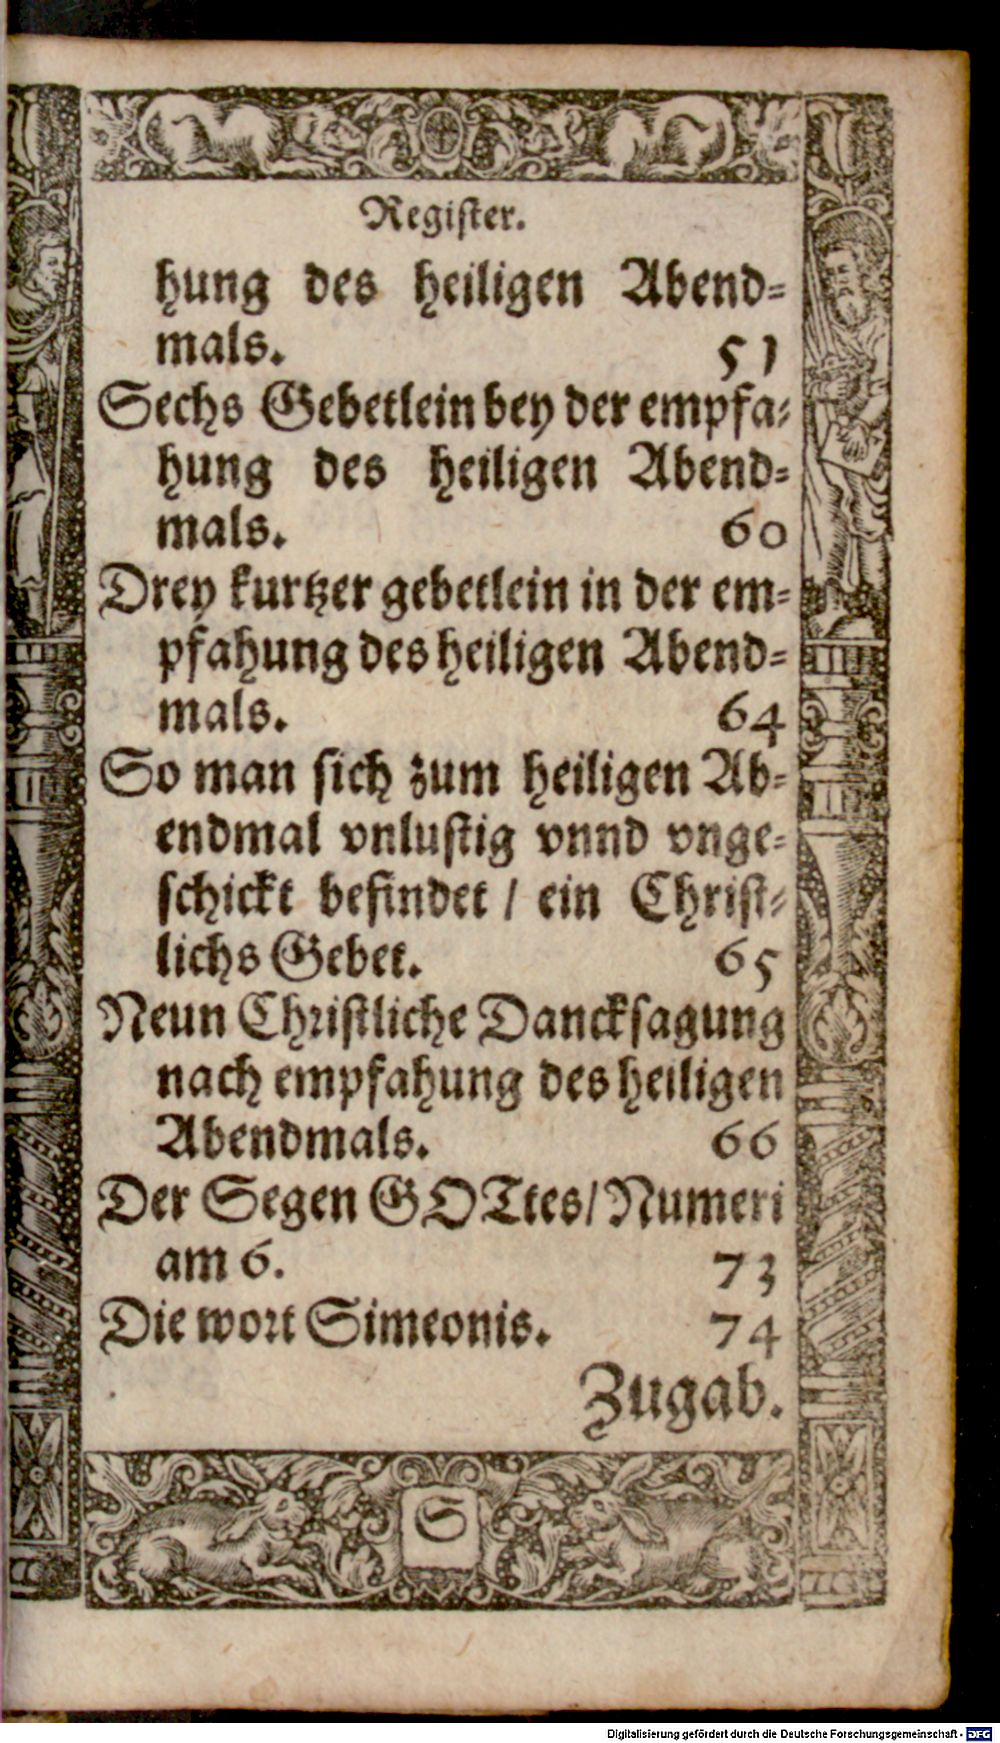 Register.
hung des heiligen Abend=
mals. 51
Sechs Gebetlein bey der empfa=
hung des heiligen Abend=
mals. 60
Drey kurtzer gebetlein in der em=
pfahung des heiligen Abend=
mals. 64
So man sich zum heiligen Ab=
endmal vnlustig vnnd vnge=
schickt befindet / ein Christ=
lichs Gebet. 65
Neun Christliche Dancksagung
nach empfahung des heiligen
Abendmals. 66
Der Segen GOTtes / Numeri
am 6. 73
Die wort Simeonis. 74
Zugab.
S
Digitalisierung gefördert durch die Deutsche Forschungsgemeinschaft - DFG